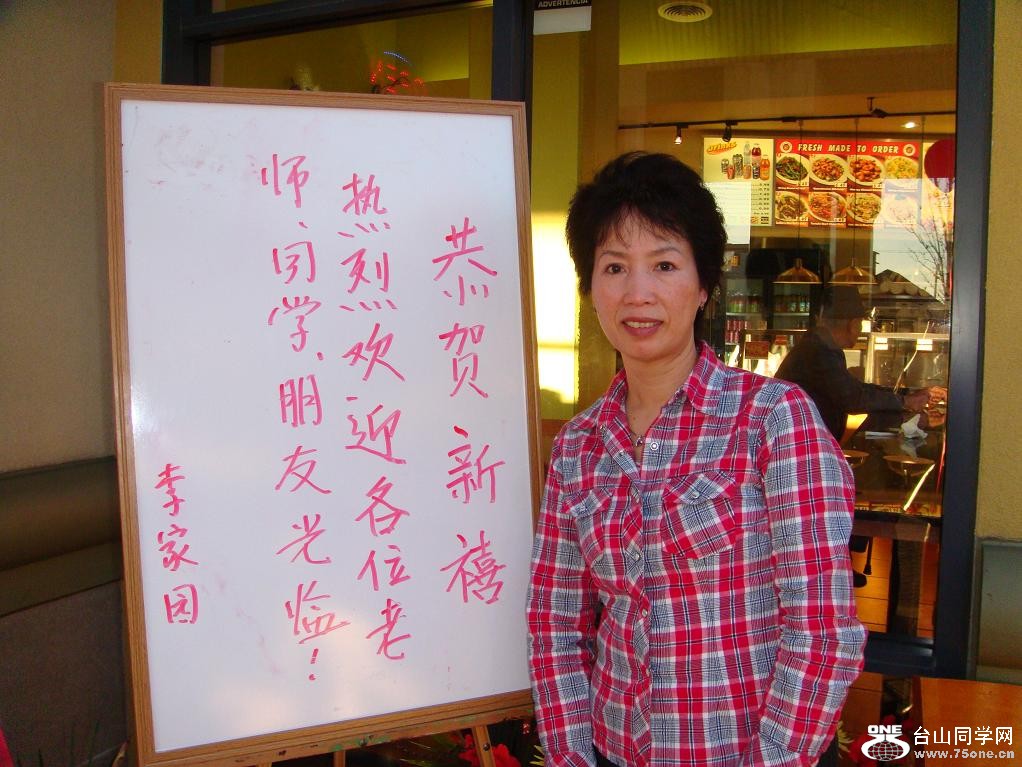 恭贺新禧
热烈欢迎各位老
师、同学、朋友光临!
李家园
ADVERTENCIA
Drinks
FRESH MADE TO ORDER
ONE
台山同学网
www.75one.cn